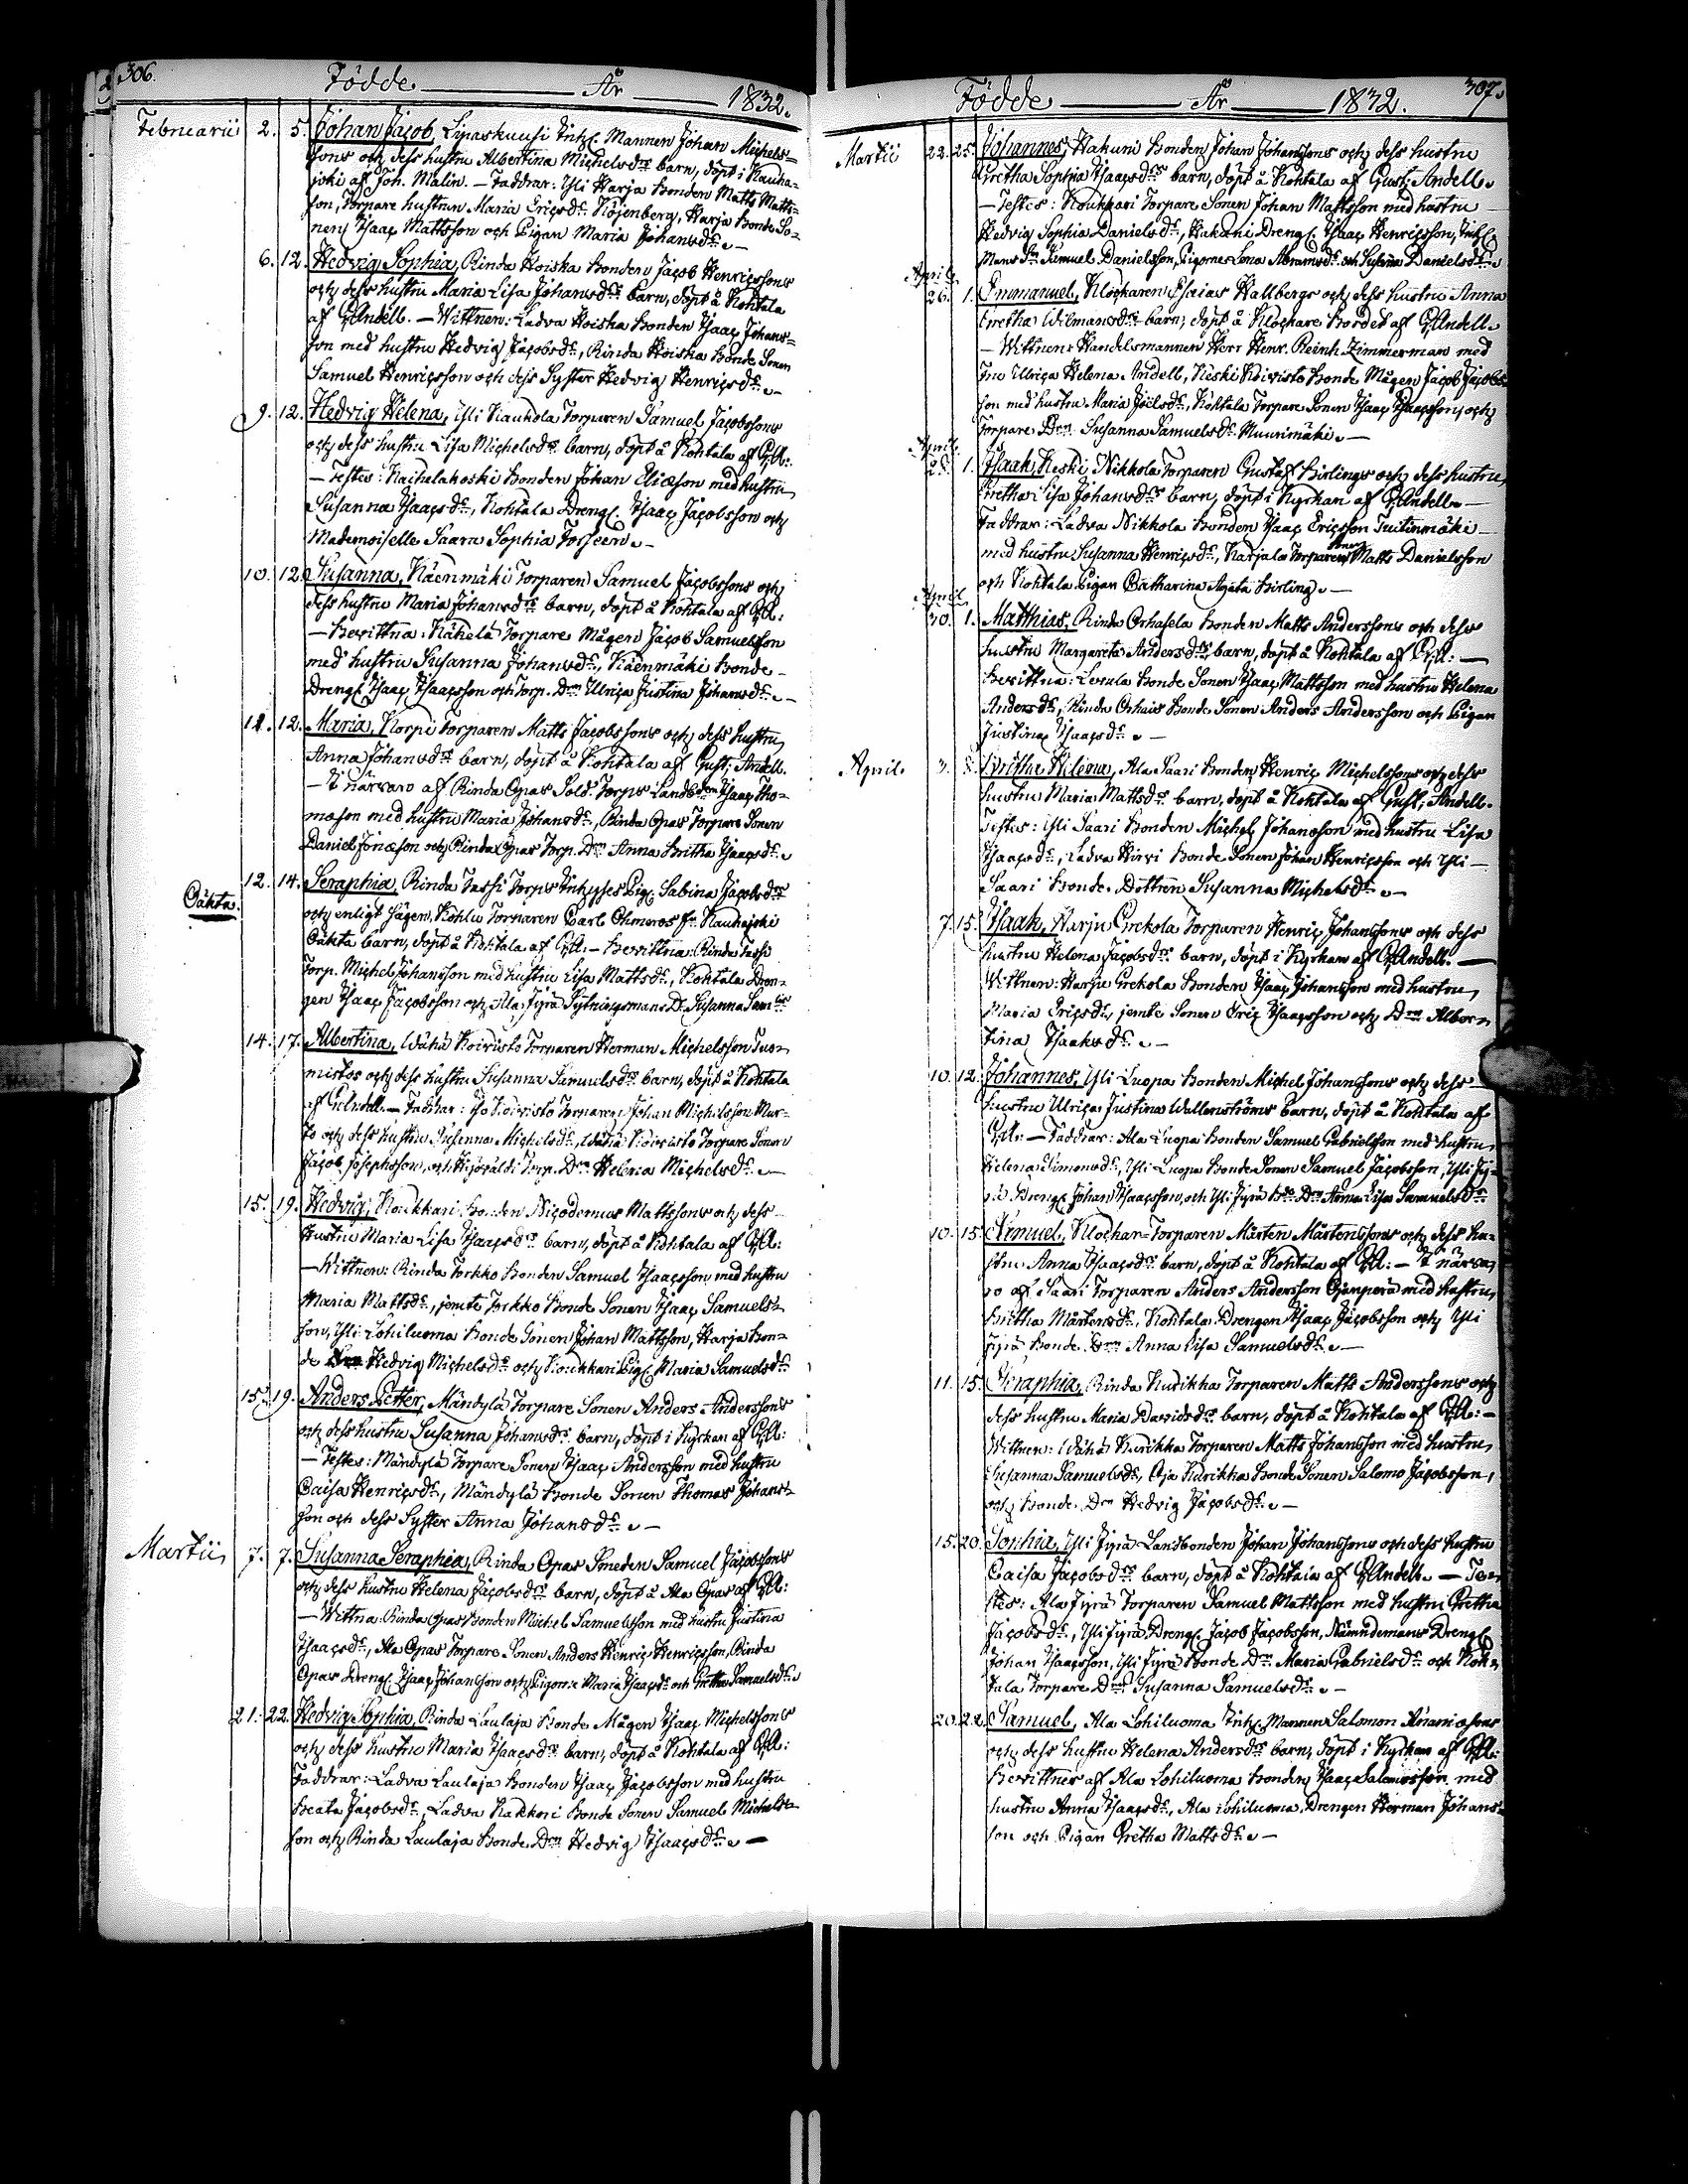 306.
Födde År 1832.
Februarii 2. 5. Johan Jacob, Lipaskuusi Inhys. Mannen Johan Michels=
sons och dess hustru Albertina Michelsdrs barn, döpt i Kauha=
joki af Joh. Malin. — Faddrar: Yli Harja Bonden Matts Matts=
son, Torpare hustrun Maria Ericsdr. Röjenberg, Harja Bonde So=
nen Isaac Mattsson och Pigan Maria Johansdr. —
6. 12. Hedvig Sophia, Rinda Koiska Bonden Jacob Henricssons
och dess hustru Maria Lisa Johansdrs barn, döpt å Kohtala
af GAndell. — Wittnen: Ladva Koiska Bonden Isaac Johans=
son med hustru Hedvig Jacobsdr., Rinda Koiska Bonde Sonen
Samuel Henricsson och dess Syster Hedvig Henricsdr. —
9. 12. Hedvig Helena, Yli Kauhola Torparen Samuel Jacobssons
och dess hustru Lisa Michelsdrs barn, döpt å Kohtala af GA:
— Testes: Kachelakoski Bonden Johan Eliæson med hustru
Susanna Isaacsdr., Kohtala Dreng. Isaac Jacobsson och
Mademoiselle Saara Sophia Forseen. —
10. 12. Susanna, Käenmäki Torparen Samuel Jacobssons och
dess hustru Maria Johansdrs barn, döpt å Kohtala af GA:
— Bevittna: Kähelä Torpare Mågen Jacob Samuelsson
med hustru Susanna Johansdr., Käenmäki Bonde
Dreng. Isaac Isaacsson och Torp. Drn Ulrica Justina Johansdr. —
11. 12. Maria, Korpi Torparen Matts Jacobssons och dess hustru
Anna Johansdrs barn, döpt å Kohtala af Gust: Andell.
— I närvaro af Rinda Opas Sold. Torps Landbdn Isaac Tho=
mæson med hustru Maria Johansdr., Rinda Opas Torpare Sonen
Daniel Jonæson och Rinda Opas Torp. Drn Anna Britha Isaacsdr.
12. 14. Seraphia, Rinda Fassi Torps Inhyses Pig. Sabina Jacobsdrs
Oäkta. och enligt sägen, Kohlu Torparen Carl Ohmeros fr. Kauhajoki
Oäkta barn, döpt å Kohtala af GA: — Bevittna: Rinda Fassi
Torp. Michel Johansson med hustru Lisa Mattsdr., Kohtala Dren=
gen Isaac Jacobsson och Ala Jyrä Sytningsmans Dr. Susanna Sam:dr
14. 17. Albertina, Wähä Koivisto Torparen Herman Michelsson Tuo=
mistos och dess hustru Susanna Samuelsdrs barn, döpt å Kohtala
af GAndell. — Faddrar: Iso Koivisto Torparen Johan Michelsson Mur=
to och dess hustru Susanna Michelsdr., Wähä Koivisto Torpare Sonen
Jacob Josephsson, och Torp. Drn Helena Michelsdr. —
15. 19. Hedvig, Koukkari Bonden Nicodemus Mattssons och dess
hustru Maria Lisa Isaacsdrs barn, döpt å Kohtala af GA:
— Wittnen: Rinda Torkko Bonden Samuel Isaacsson med hustru
Maria Mattsdr., jemte Torkko Bonde Sonen Isaac Samuels=
son, Yli Lohiluoma Bonde Sonen Johan Mattsson, Harja Bon=
de Hedvig Michelsdr. och Koukkari Pig. Maria Samuelsdr.
15. 19. Anders Petter, Mändylä Torpare Sonen Anders Anderssons
och dess hustru Susanna Johansdrs barn, döpt i Kyrkan af GA:
— Testes: Mändylä Torpare Sonen Isaac Andersson med hustru
Caisa Henricsdr., Mändylä Bonde Sonen Thomas Johans=
son och dess Syster Anna Johansdr. —
Martii 7. 7. Susanna Seraphia, Rinda Opas Smeden Samuel Jacobssons
och dess hustru Helena Jacobsdrs barn, döpt å Ala Opas af GA:
— Wittna: Rinda Opas Bonden Michel Samuelsson med hustru Justina
Isaacsdr., Ala Opas Torpare Sonen Anders Henric Henricsson, Rinda
Opas Dreng. Isaac Johansson och Pigorne Maria Isaacsdr. och Gretha Samuelsdr.
21. 22. Hedvig Sophia, Rinda Laulaja Bonde Mågen Isaac Michelssons
och dess hustru Maria Isaacsdrs barn, döpt å Kohtala af GA:
Faddrar: Ladva Laulaja Bonden Isaac Jacobsson med hustru
Beata Jacobsdr., Ladva Kakkori Bonde Sonen Samuel Michels=
son och Rinda Laulaja Bonde Drn Hedvig Isaacsdr. —
307.
Födde År 1832.
Martii 22. 25. Johannes, Hakuni Bonden Johan Johanssons och dess hustru
Gretha Sophia Isaacsdrs barn, döpt å Kohtala af Gust: Andell.
— Testes: Koukkari Torpare Sonen Johan Mattsson med hustru
Hedvig Sophia Danielsdr., Hakuni Dreng. Isaac Henricsson, Inhys.
Mans Sn Samuel Danielsson, Pigorne Lena Abramsdr. och Susanna Danielsdr.
April.
26. 1. Emmanuel, Klockaren Esaias Hallbergs och dess hustru Anna
Gretha Wilmansdrs barn, döpt å Klockare Bordet af GAndell.
— Wittnen: Handelsmannen Herr Henr. Reinh. Zimmerman med
Fru Ulrica Helena Andell, Keski Koivisto Bonde Mågen Jacob Jacobs=
son med hustru Maria Joëlsdr., Kohtala Torpare Sonen Isaac Isaacsson, och
Torpare Drn Susanna Samuelsdr. Muurimäki. —
April.
28. 1. Isaak, Keski Nikkola Torparen Gustaf Birlings och dess hustru
Gretha Lisa Johansdrs barn, döpt i Kyrkan af GAndell. —
Faddrar: Ladva Nikkola Bonden Isaac Ericsson Tuitinmäki
med hustru Susanna Henricsdr., Karjala Torparen Sonen Matts Danielsson
och Kohtala Pigan Catharina Agata Birling. —
April.
30. 1. Matthias, Rinda Orhasela Bonden Matts Anderssons och dess
hustru Margareta Andersdrs barn, döpt å Kohtala af GA: —
Bevittna: Levula Bonde Sonen Isaac Mattsson med hustru Helena
Andersdr., Rinda Orhais Bonde Sonen Anders Andersson och Pigan
Justina Isaacsdr. —
April. 3. 8. Britha Helena, Ala Saari Bonden Henric Michelssons och dess
hustru Maria Mattsdrs barn, döpt å Kohtala af Gust: Andell.
Testes: Yli Saari Bonden Michel Johansson med hustru Lisa
Isaacsdr., Ladva Hirvi Bonde Sonen Johan Henricsson och Yli
Saari Bonde Dottren Susanna Michelsdr. —
7. 15. Isaak, Harju Grekola Torparen Henric Johanssons och dess
hustru Helena Jacobsdrs barn, döpt i Kyrkan af GAndell. —
Wittnen: Harju Grekola Bonden Isaac Johansson med hustru
Maria Ericsdr., jemte Sonen Eric Isaacsson och Drn Alber=
tina Isaaksdr. —
10. 12. Johannes, Yli Luopa Bonden Michel Johanssons och dess
hustru Ulrica Justina Wallenströms barn, döpt å Kohtala af
GA: — Faddrar: Ala Luopa Bonden Samuel Gabrielsson med hustru
Helena Simonsdr., Yli Luopa Bonde Sonen Samuel Jacobsson, Yli Jy=
rä Dreng. Johan Isaacsson, och Yli Jyrä Bde Drn Anna Lisa Samuelsdr.
10. 15. Samuel, Klockar=Torparen Mårten Mårtenssons och dess hu=
stru Anna Isaacsdrs barn, döpt å Kohtala af GA: — I närva=
ro af Saari Torparen Anders Andersson Ojanperä med hustru
Britha Mårtensdr., Kohtala Drengen Isaac Jacobsson och Yli
Jyrä Bonde Drn Anna Lisa Samuelsdr. —
11. 15. Seraphia, Rinda Kurikka Torparen Matts Anderssons och
dess hustru Maria Davidsdrs barn, döpt å Kohtala af GA: —
Wittnen: Wähä Kurikka Torparen Matts Johansson med hustru
Susanna Samuelsdr., Oja Kurikka Bonde Sonen Salomo Jacobsson,
och Bonde Drn Hedvig Jacobsdr. —
15. 20. Sophia, Yli Jyrä Landbonden Johan Johanssons och dess hustru
Caisa Jacobsdrs barn, döpt å Kohtala af GAndell. — Tes=
tes: Ala Jyrä Torparen Samuel Mattsson med hustru Gretha
Jacobsdr., Yli Jyrä Dreng. Jacob Jacobsson, Nämndemans Dreng.
Johan Isaacsson, Yli Jyrä Bonde Drn Maria Gabrielsdr. och Koh=
tala Torpare Drn Susanna Samuelsdr. —
20. 22. Samuel, Ala Lohiluoma Inhys. Mannen Salomon Ananiæsons
och dess hustru Helena Andersdrs barn, döpt i Kyrkan af GA:
Bevittnes af Ala Lohiluoma Bonden Isaac Salomosson med
hustru Anna Isaacsdr., Ala Lohiluoma Drengen Herman Johans=
son och Pigan Gretha Mattsdr. —